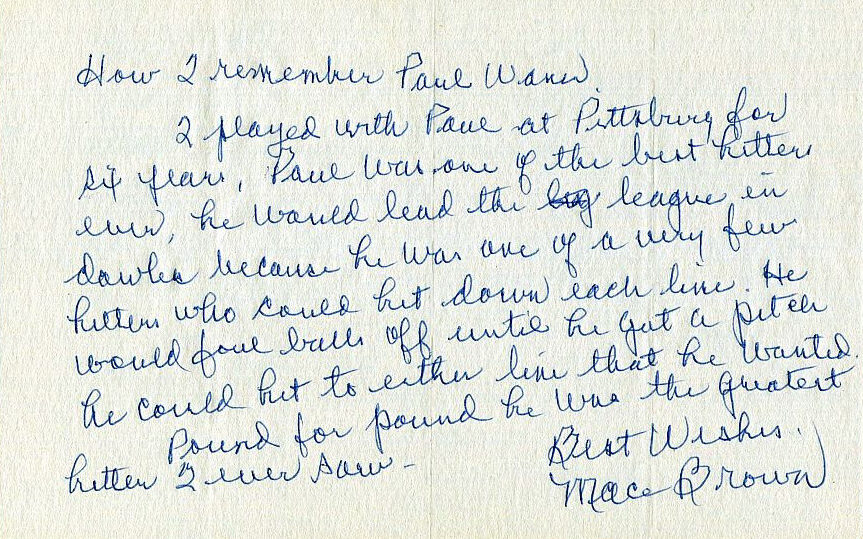 How I remember Paul Waner.
I played with Paul at Pittsburg for
six years, Paul was one of the best hitters
ever, he would lead the big league in
doubles because he was one of a very few
hitters who could hit down each line. He
would foul balls off until he got a pitch
he could hit to either line that he wanted.
Pound for pound he was the greatest
hitter I ever saw-
Best Wishes.
Mace Brown